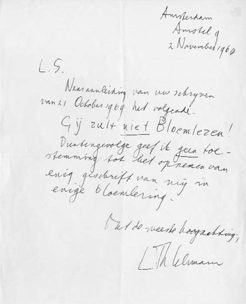 Amsterdam
Amstel 9
2 November 1969
L.S.
Naar aanleiding van uw schrijven
van 21 October 1969 het volgende.
Gij zult niet Bloemlezen!
Dientengevolge geef ik geen toe-
stemming tot het opnemen van
enig geschrift van mij in
enige bloemlezing.
Met de meeste hoogachting,